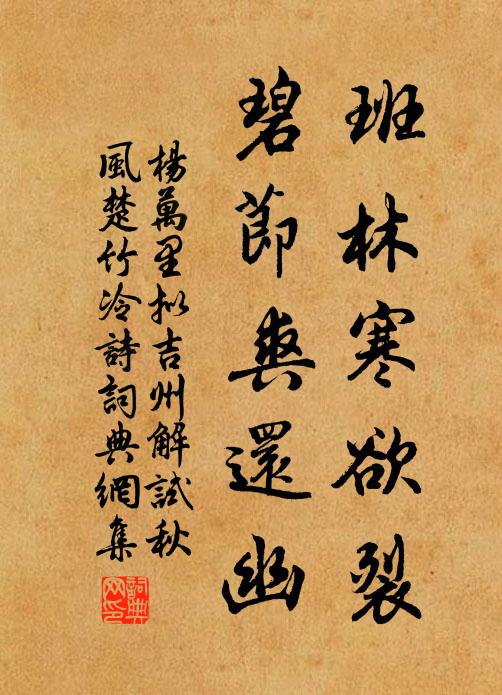 班林寒欲裂
碧節爽還幽
楊萬里拟吉州解試秋
風楚竹冷詩詞典網集
詞典
网印